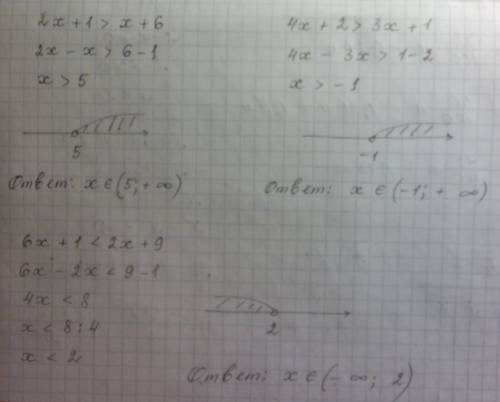 2x + 1 > x + 6
2x - x > 6 - 1
x > 5
5
Ответ: x ∈ (5; + ∞)
4x + 2 > 3x + 1
4x - 3x > 1 - 2
x > - 1
-1
Ответ: x ∈ (-1; + ∞)
6x + 1 < 2x + 9
6x - 2x < 9 - 1
4x < 8
x < 8 : 4
x < 2
2
Ответ: x ∈ (- ∞; 2)